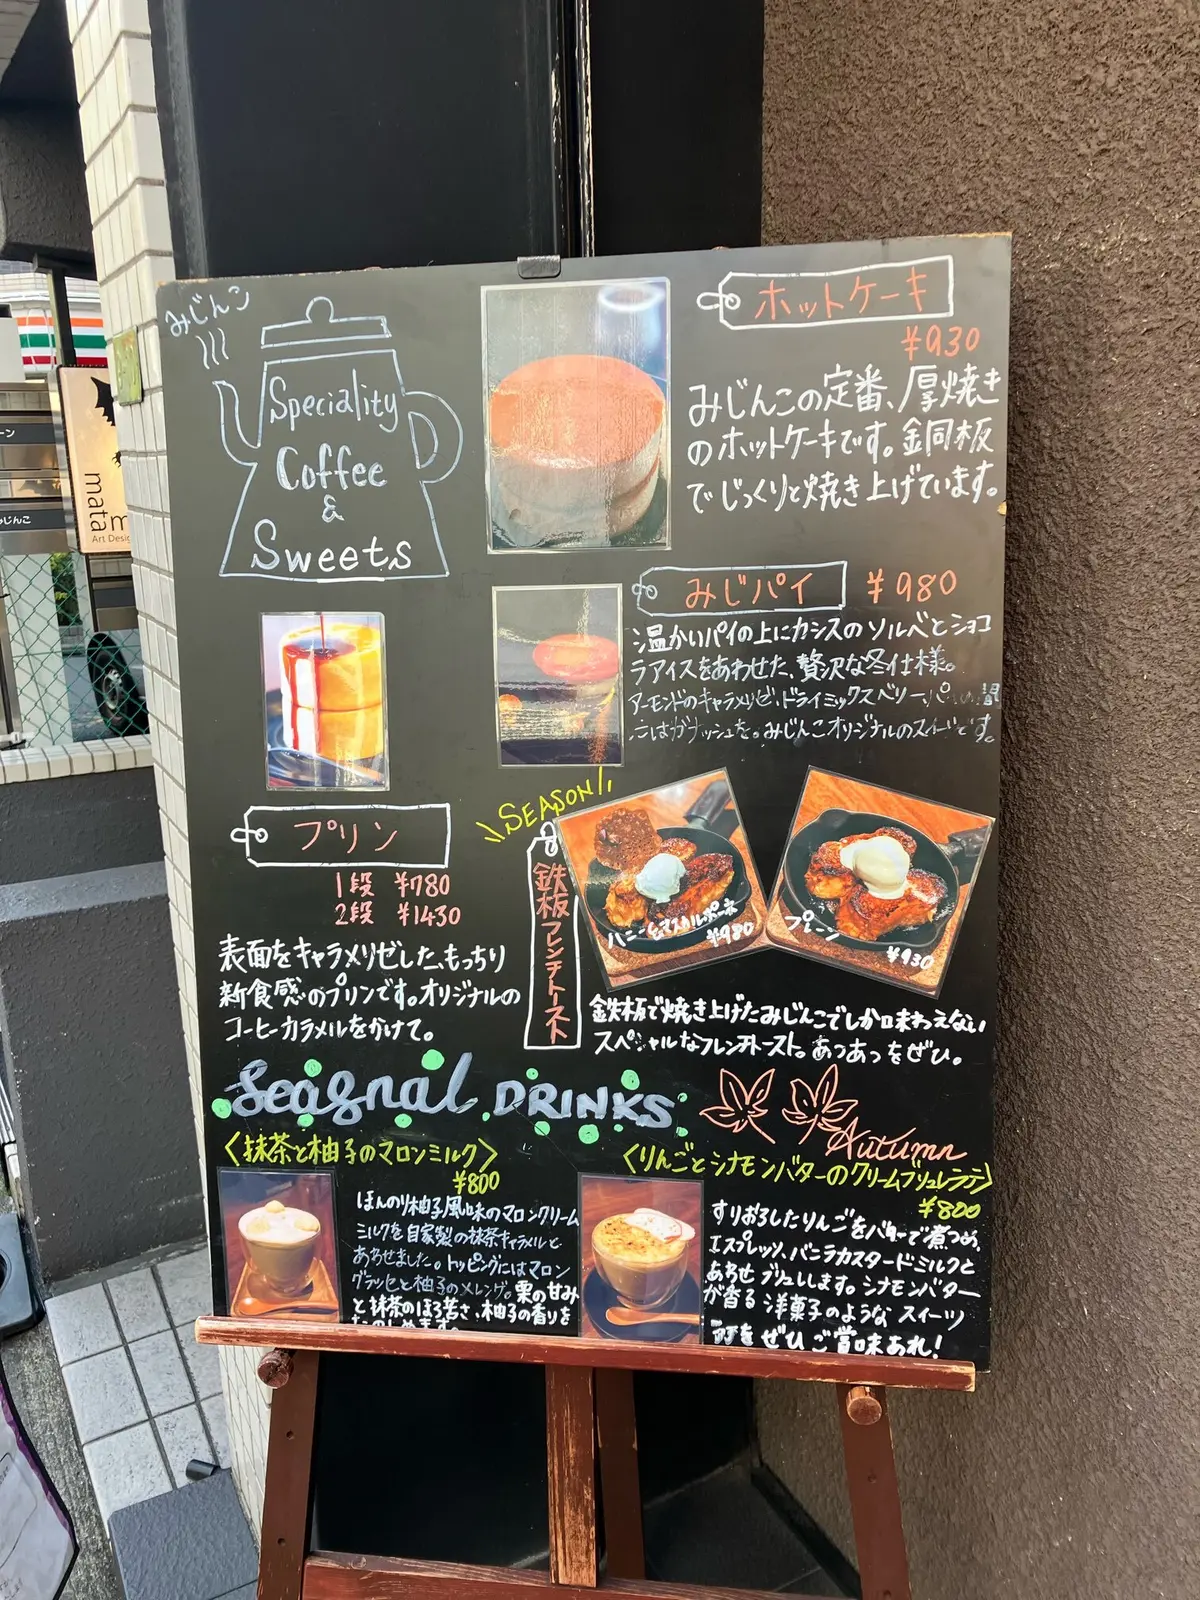 みじんこ
Speciality
Coffee
&
Sweets
ホットケーキ
¥930
みじんこの定番、厚焼き
のホットケーキです。銅板
でじっくりと焼き上げています。
みじパイ ¥980
温かいパイの上にカシスのソルベとショコ
ラアイスをあわせた、贅沢な冬仕様。
アーモンドのキャラメリゼ、ドライミックスベリー、
にはガナッシュを。みじんこオリジナルのスイーツです。
プリン
1段 ¥780
2段 ¥1430
表面をキャラメリゼした、もっちり
新食感のプリンです。オリジナルの
コーヒーカラメルをかけて。
SEASON
鉄板フレンチトースト
ハニー&マスカルポーネ
¥980
プレーン
¥930
鉄板で焼き上げたみじんこでしか味わえない
スペシャルなフレンチトースト。あつあつをぜひ。
Seasonal DRINKS
Autumn
〈抹茶と柚子のマロンミルク〉
¥800
ほんのり柚子風味のマロンクリーム
ミルクを自家製の抹茶キャラメルと
あわせました。トッピングにはマロン
グラッセと柚子のメレンゲ。栗の甘み
と抹茶のほろ苦さ、柚子の香りを
たのしめます。
〈りんごとシナモンバターのクリームブリュレラテ〉
¥800
すりおろしたりんごをバターで煮つめ、
エスプレッソ、バニラカスタードミルクと
あわせブリュレします。シナモンバター
が香る洋菓子のようなスイーツ
をぜひご賞味あれ!
みじんこ
mata
Art Desi